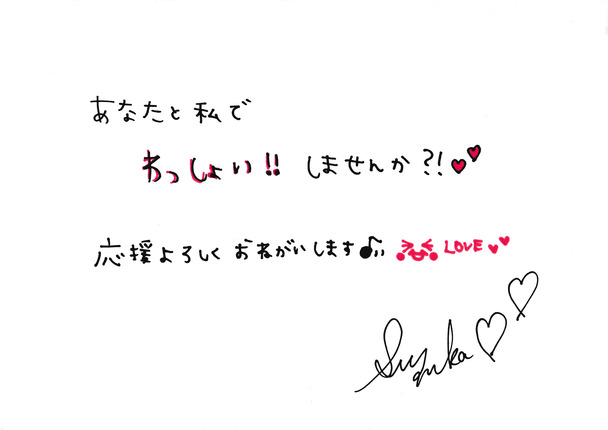 あなたと私で
わっしょい!! しませんか?!
応援よろしくおねがいします♪ LOVE
Suzuka